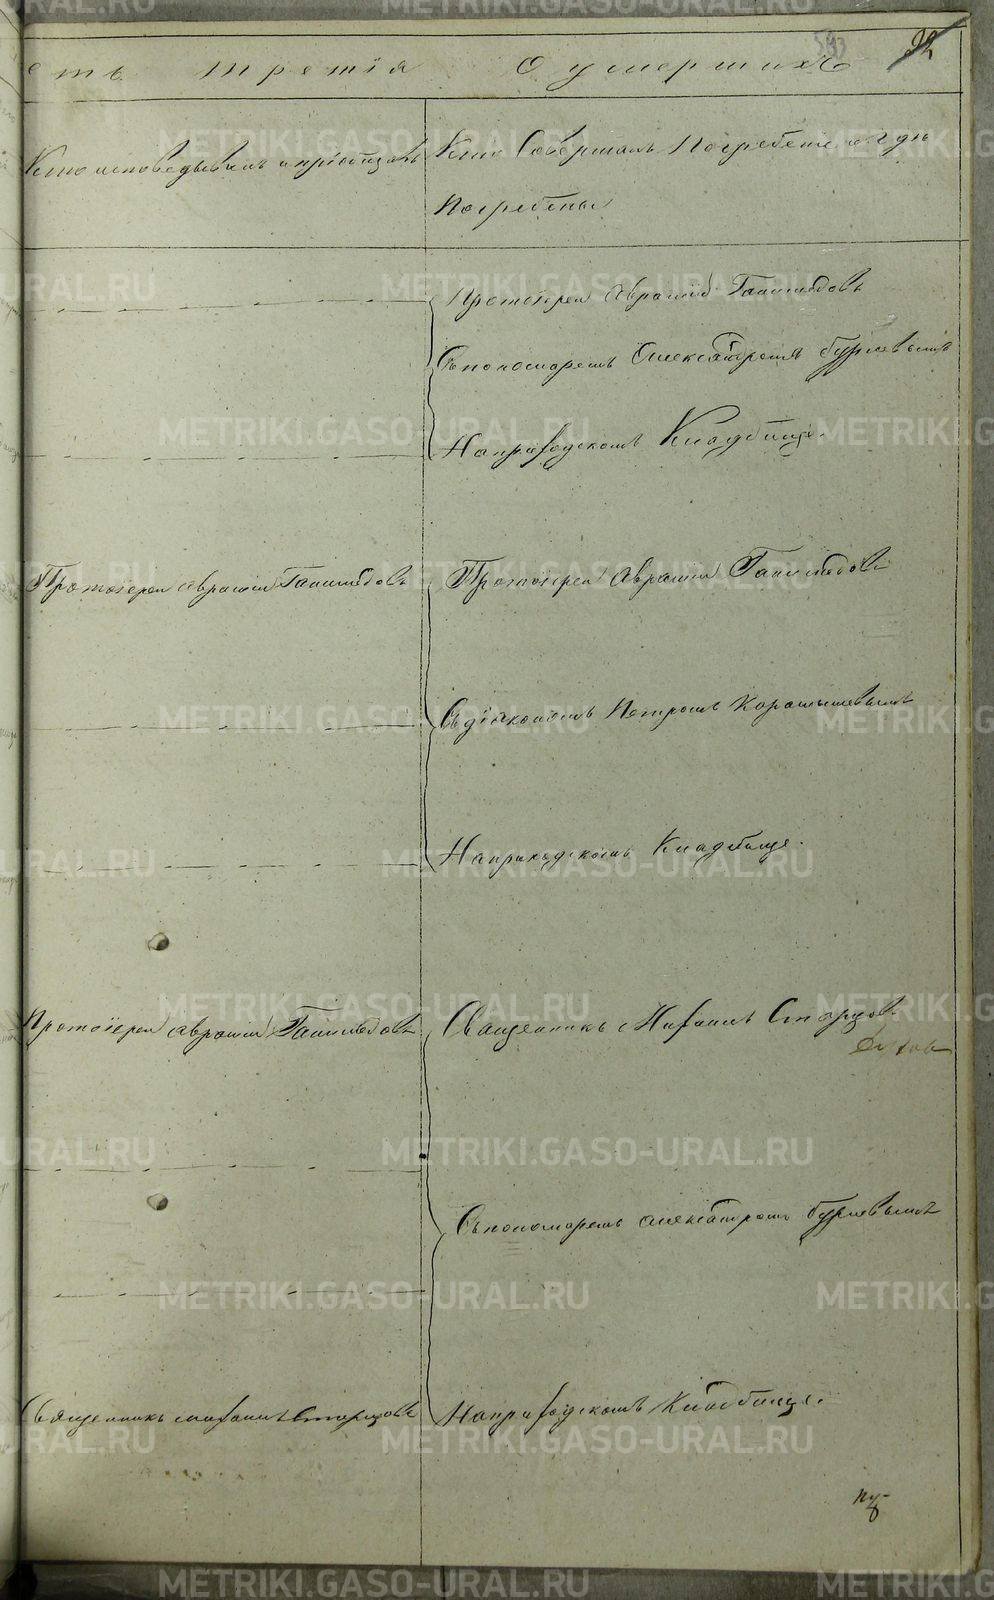 593 92
сть третія О умершихъ
Кто исповедывалъ и пріобщалъ
Кто Совершалъ Погребеніе и гдѣ
Погребены
Протоіерей Аврамій
Съ пономаремъ Александромъ Бурцевымъ
На приходскомъ Кладбище.
Протоіерей Аврамій
Протоіерей Аврамій
Съ діякономъ Петромъ
На приходскомъ Кладбище.
Протоіерей Аврамій
Священникъ Михаилъ Старцовъ
Съ пономаремъ Александромъ Бурцевымъ
Священникъ Михаилъ Старцовъ
На приходскомъ Кладбище.
METRIKI.GASO-URAL.RU